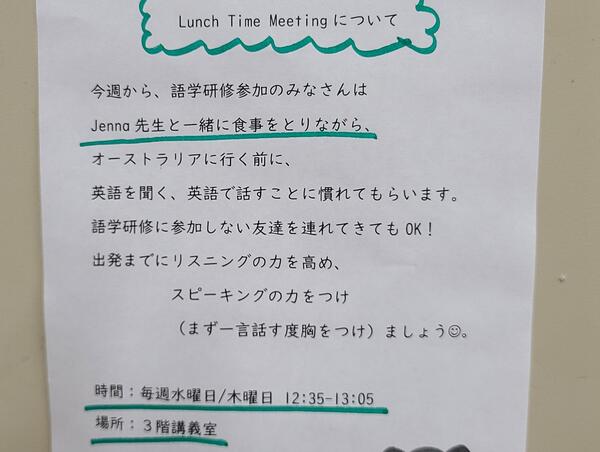 Lunch Time Meetingについて
今週から、語学研修参加のみなさんは
Jenna先生と一緒に食事をとりながら、
オーストラリアに行く前に、
英語を聞く、英語で話すことに慣れてもらいます。
語学研修に参加しない友達を連れてきてもOK!
出発までにリスニングの力を高め、
スピーキングの力をつけ
(まず一言話す度胸をつけ)ましょう☺。
時間:毎週水曜日/木曜日 12:35-13:05
場所:3階講義室